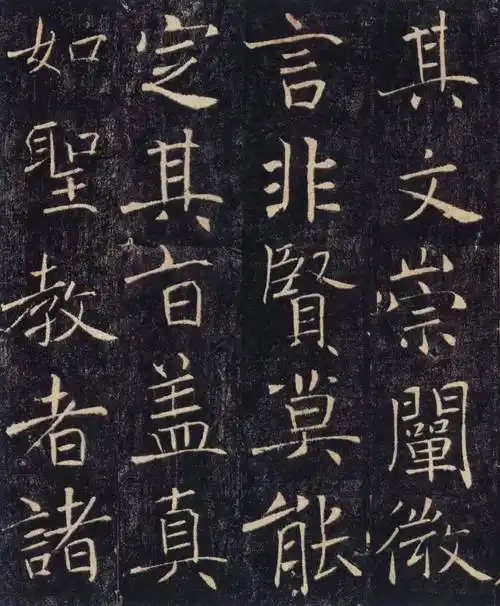 其文崇闡微
言非賢莫能
定其㫖盖真
如聖教者諸